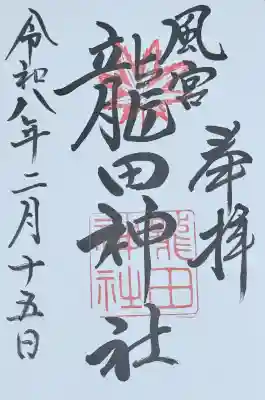 奉拝
風宮
龍田神社
龍田神社
令和八年二月十五日